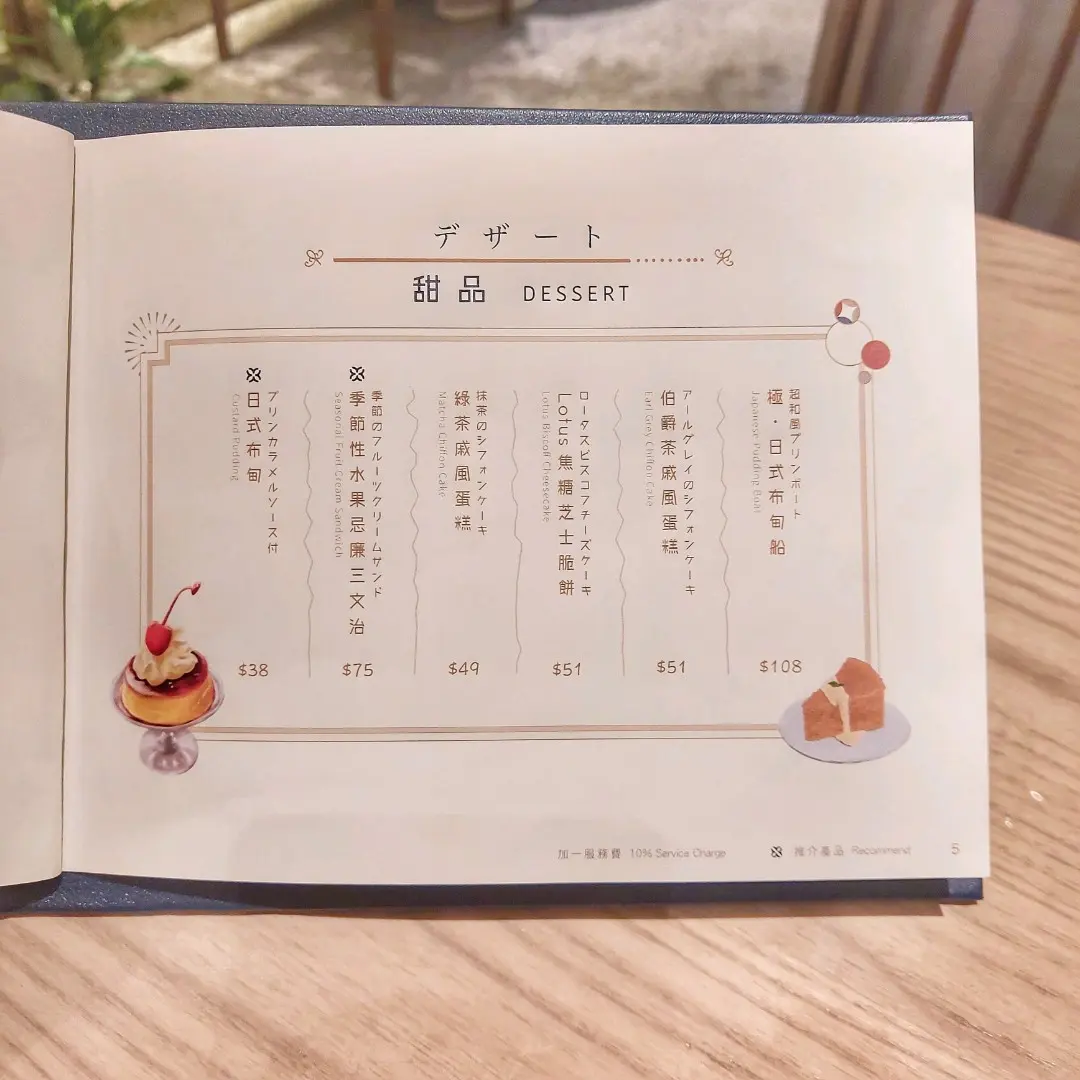 デザート
甜品 DESSERT
超和風プリンボート
極・日式布甸船
Japanese Pudding Boat
$108
アールグレイのシフォンケーキ
伯爵茶戚風蛋糕
Earl Grey Chiffon Cake
$51
ロータスビスコフチーズケーキ
Lotus 焦糖芝士脆餅
Lotus Biscoff Cheesecake
$51
抹茶のシフォンケーキ
綠茶戚風蛋糕
Matcha Chiffon Cake
$49
季節のフルーツクリームサンド
季節性水果忌廉三文治
Seasonal Fruit Cream Sandwich
$75
プリンカラメルソース付
日式布甸
Custard Pudding
$38
加一服務費 10% Service Charge
推介產品 Recommend
5